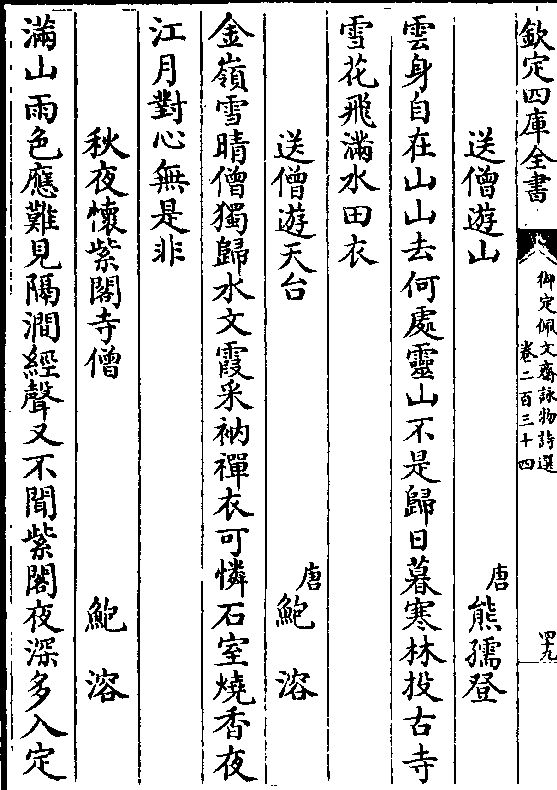 欽定四庫全書
御定佩文齋詠物詩選
卷二百三十四
四十九
送僧遊山
唐熊孺登
雲身自在山山去何處靈山不是歸日暮寒林投古寺
雪花飛滿水田衣
送僧遊天台
唐鮑溶
金嶺雪晴僧獨歸水文霞采衲禪衣可憐石室燒香夜
江月對心無是非
秋夜懷紫閣寺僧
鮑溶
滿山雨色應難見隔澗經聲又不聞紫閣夜深多入定